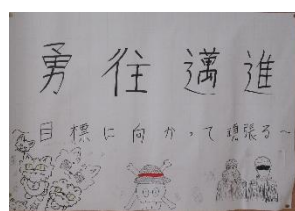 勇往邁進
~目標に向かって頑張る~